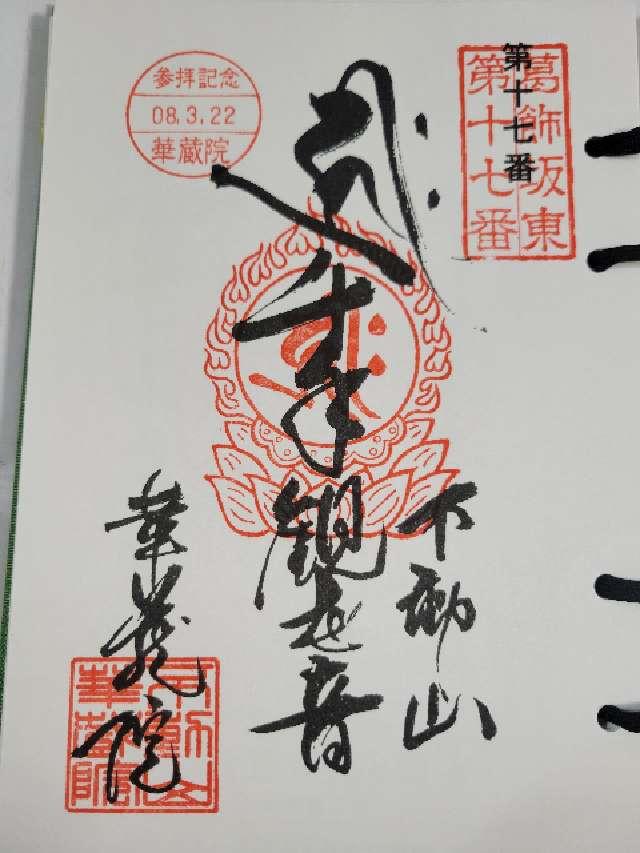 葛飾坂東
第十七番
第十七番
参拝記念
08.3.22
華蔵院
千手観世音
不動山
華蔵院
不動山
華蔵院